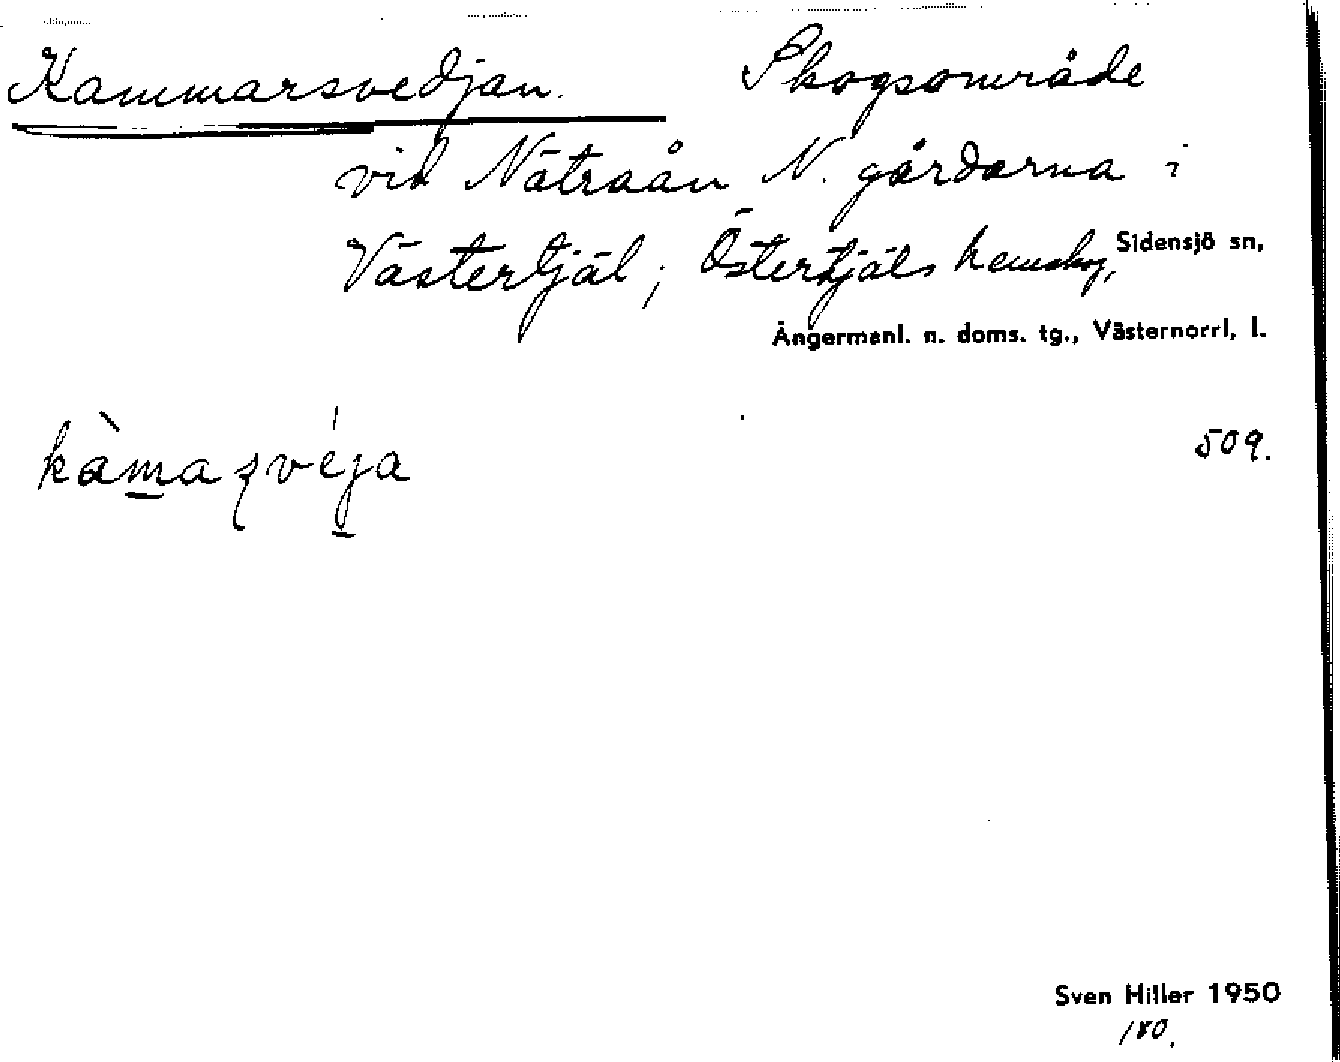 Kammarsvedjan. Skogsområde
vid Nätraån N. gårdarna i
Västertjäl; Östertjäls hemskog,
Sidensjö sn,
Ångermanl. n. doms. tg., Västernorrl. l.
509.
Sven Hiller 1950
180.